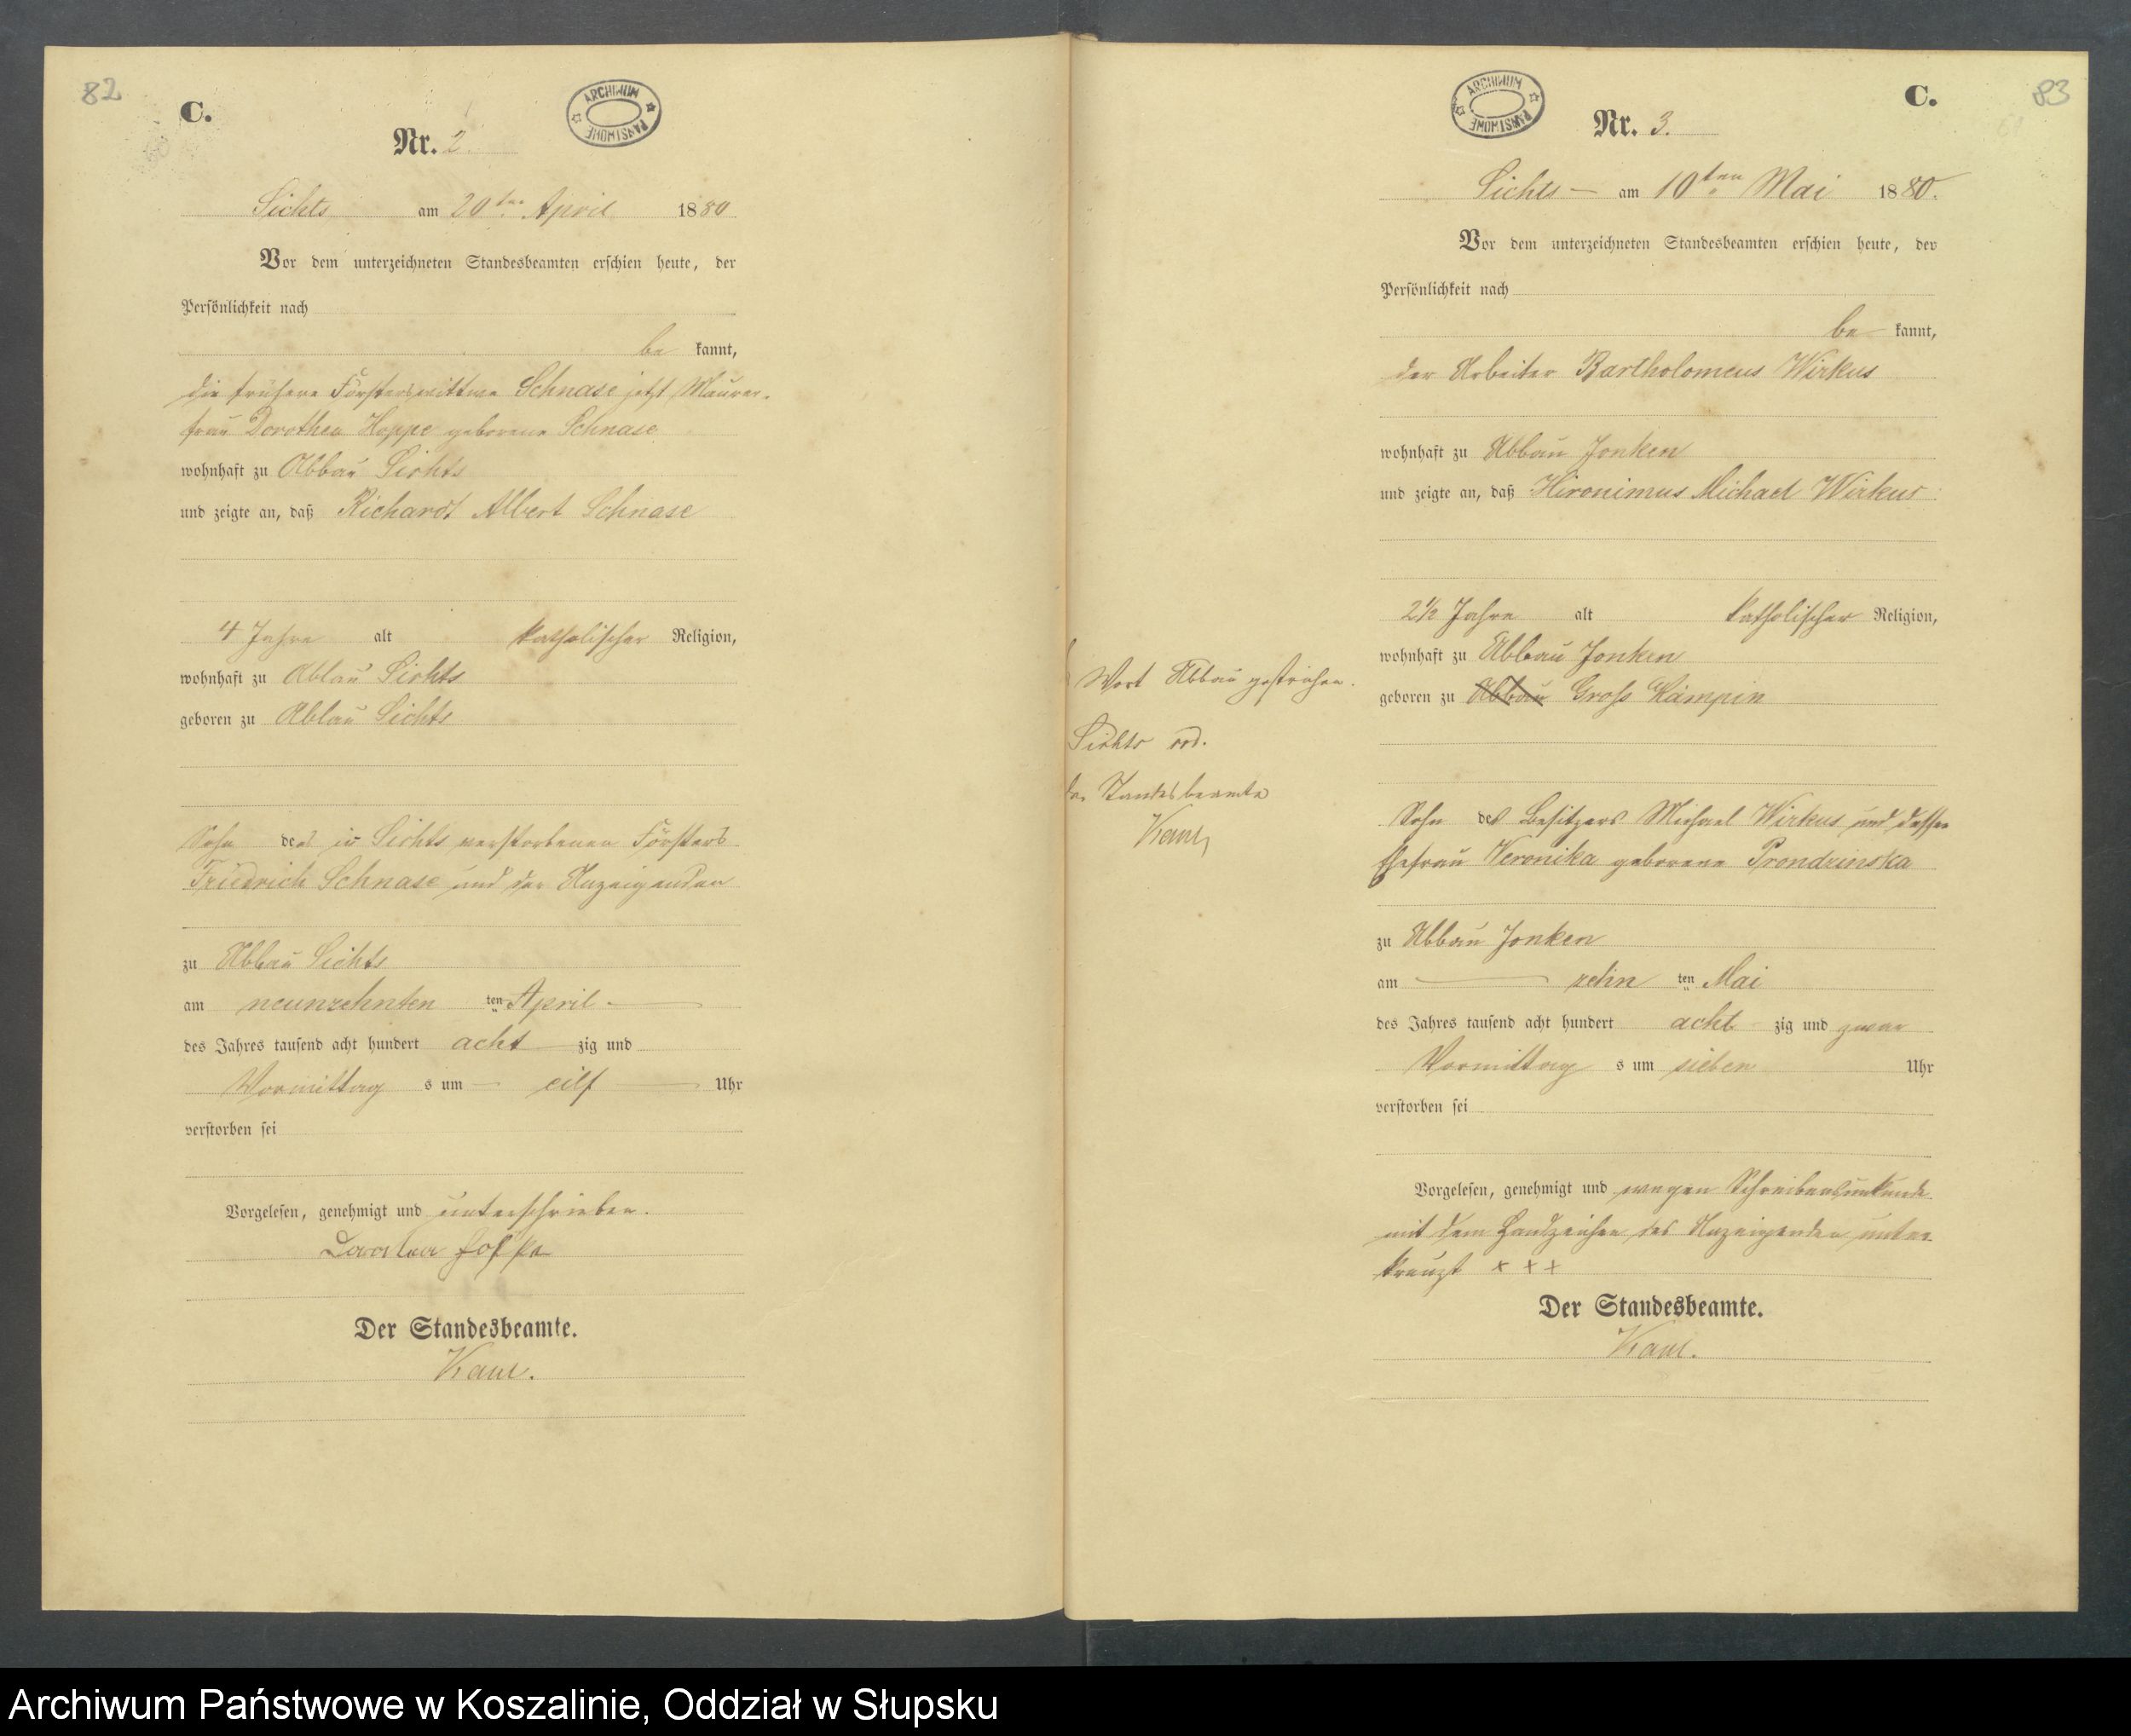 82
C.
ARCHIWUM PAŃSTWOWE
Nr. 2.
Sichts am 20ten April 1880
Vor dem unterzeichneten Standesbeamten erschien heute, der
Persönlichkeit nach
be kannt,
die frühere Försterswittwe Schnase jetzt Maurer-
frau Dorothea Hoppe geborene Schnase
wohnhaft zu Abbau Sichts
und zeigte an, daß Richardt Albert Schnase
4 Jahre alt katholischer Religion,
wohnhaft zu Abbau Sichts
geboren zu Abbau Sichts
Sohn des in Sichts verstorbenen Försters
Friedrich Schnase und der Anzeigenden
zu Abbau Sichts
am neunzehnten ten April
des Jahres tausend acht hundert acht zig und
Vormittag s um eilf Uhr
verstorben sei
Vorgelesen, genehmigt und unterschrieben.
Dorothea Hoppe
Der Standesbeamte.
Kaul.
83
C.
ARCHIWUM PAŃSTWOWE
Nr. 3.
Sichts am 10ten Mai 1880.
Vor dem unterzeichneten Standesbeamten erschien heute, der
Persönlichkeit nach
be kannt,
der Arbeiter Bartholomeus Wirkus
wohnhaft zu Abbau Jonken
und zeigte an, daß Hironimus Michael Wirkus
2½ Jahre alt katholischer Religion,
wohnhaft zu Abbau Jonken
geboren zu Abbau Gross Kämpin
Wort Abbau gestrichen.
Sichts
Der Standesbeamte
Kaul
Sohn des Besitzers Michael Wirkus und dessen
Ehefrau Veronika geborene Prondzinska
zu Abbau Jonken
am zehn ten Mai
des Jahres tausend acht hundert acht zig und zwar
Vormittag s um sieben Uhr
verstorben sei
Vorgelesen, genehmigt und wegen Schreibensunkunde
mit dem Handzeichen des Anzeigenden unter
kreuzt + + +
Der Standesbeamte.
Kaul.
Archiwum Państwowe w Koszalinie, Oddział w Słupsku